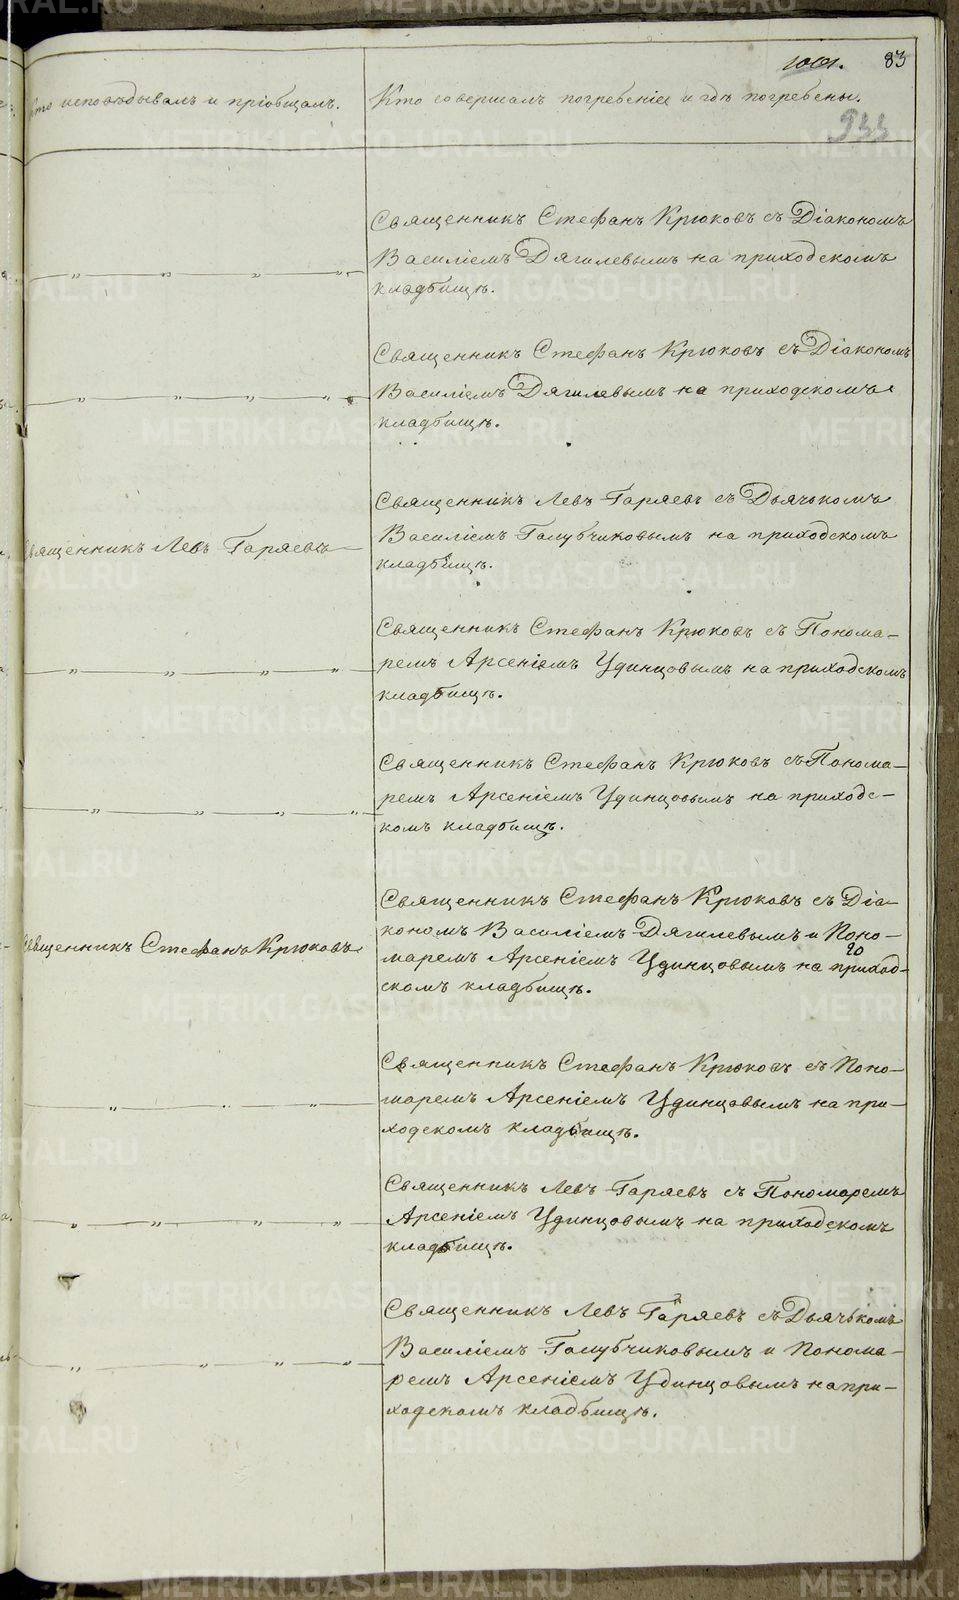 83
933
Кто исповѣдывалъ и пріобщалъ.
Кто совершалъ погребеніе и гдѣ погребены.
Священникъ Стефанъ Крюковъ съ Діакономъ
Василіемъ Дягилевымъ на приходскомъ
кладбищѣ.
Священникъ Стефанъ Крюковъ съ Діакономъ
Василіемъ Дягилевымъ на приходскомъ
кладбищѣ.
Священникъ Левъ Гаряевъ
Священникъ Левъ Гаряевъ съ Дьячькомъ
Василіемъ Голубчиковымъ на приходскомъ
кладбищѣ.
Священникъ Стефанъ Крюковъ съ Понома-
ремъ Арсеніемъ Удинцовымъ на приходскомъ
кладбищѣ.
Священникъ Стефанъ Крюковъ съ Понома-
ремъ Арсеніемъ Удинцовымъ на приходс-
комъ кладбищѣ.
Священникъ Стефанъ Крюковъ
Священникъ Стефанъ Крюковъ съ Діа-
кономъ Василіемъ Дягилевымъ и Поно-
маремъ Арсеніемъ Удинцовымъ на приход-
скомъ кладбищѣ.
Священникъ Стефанъ Крюковъ съ Поно-
маремъ Арсеніемъ Удинцовымъ на при-
ходскомъ кладбищѣ.
Священникъ Левъ Гаряевъ съ Пономаремъ
Арсеніемъ Удинцовымъ на приходскомъ
кладбищѣ.
Священникъ Левъ Гаряевъ съ Дьячькомъ
Василіемъ Голубчиковымъ и Понома-
ремъ Арсеніемъ Удинцовымъ на при-
ходскомъ кладбищѣ.
METRIKI.GASO-URAL.RU